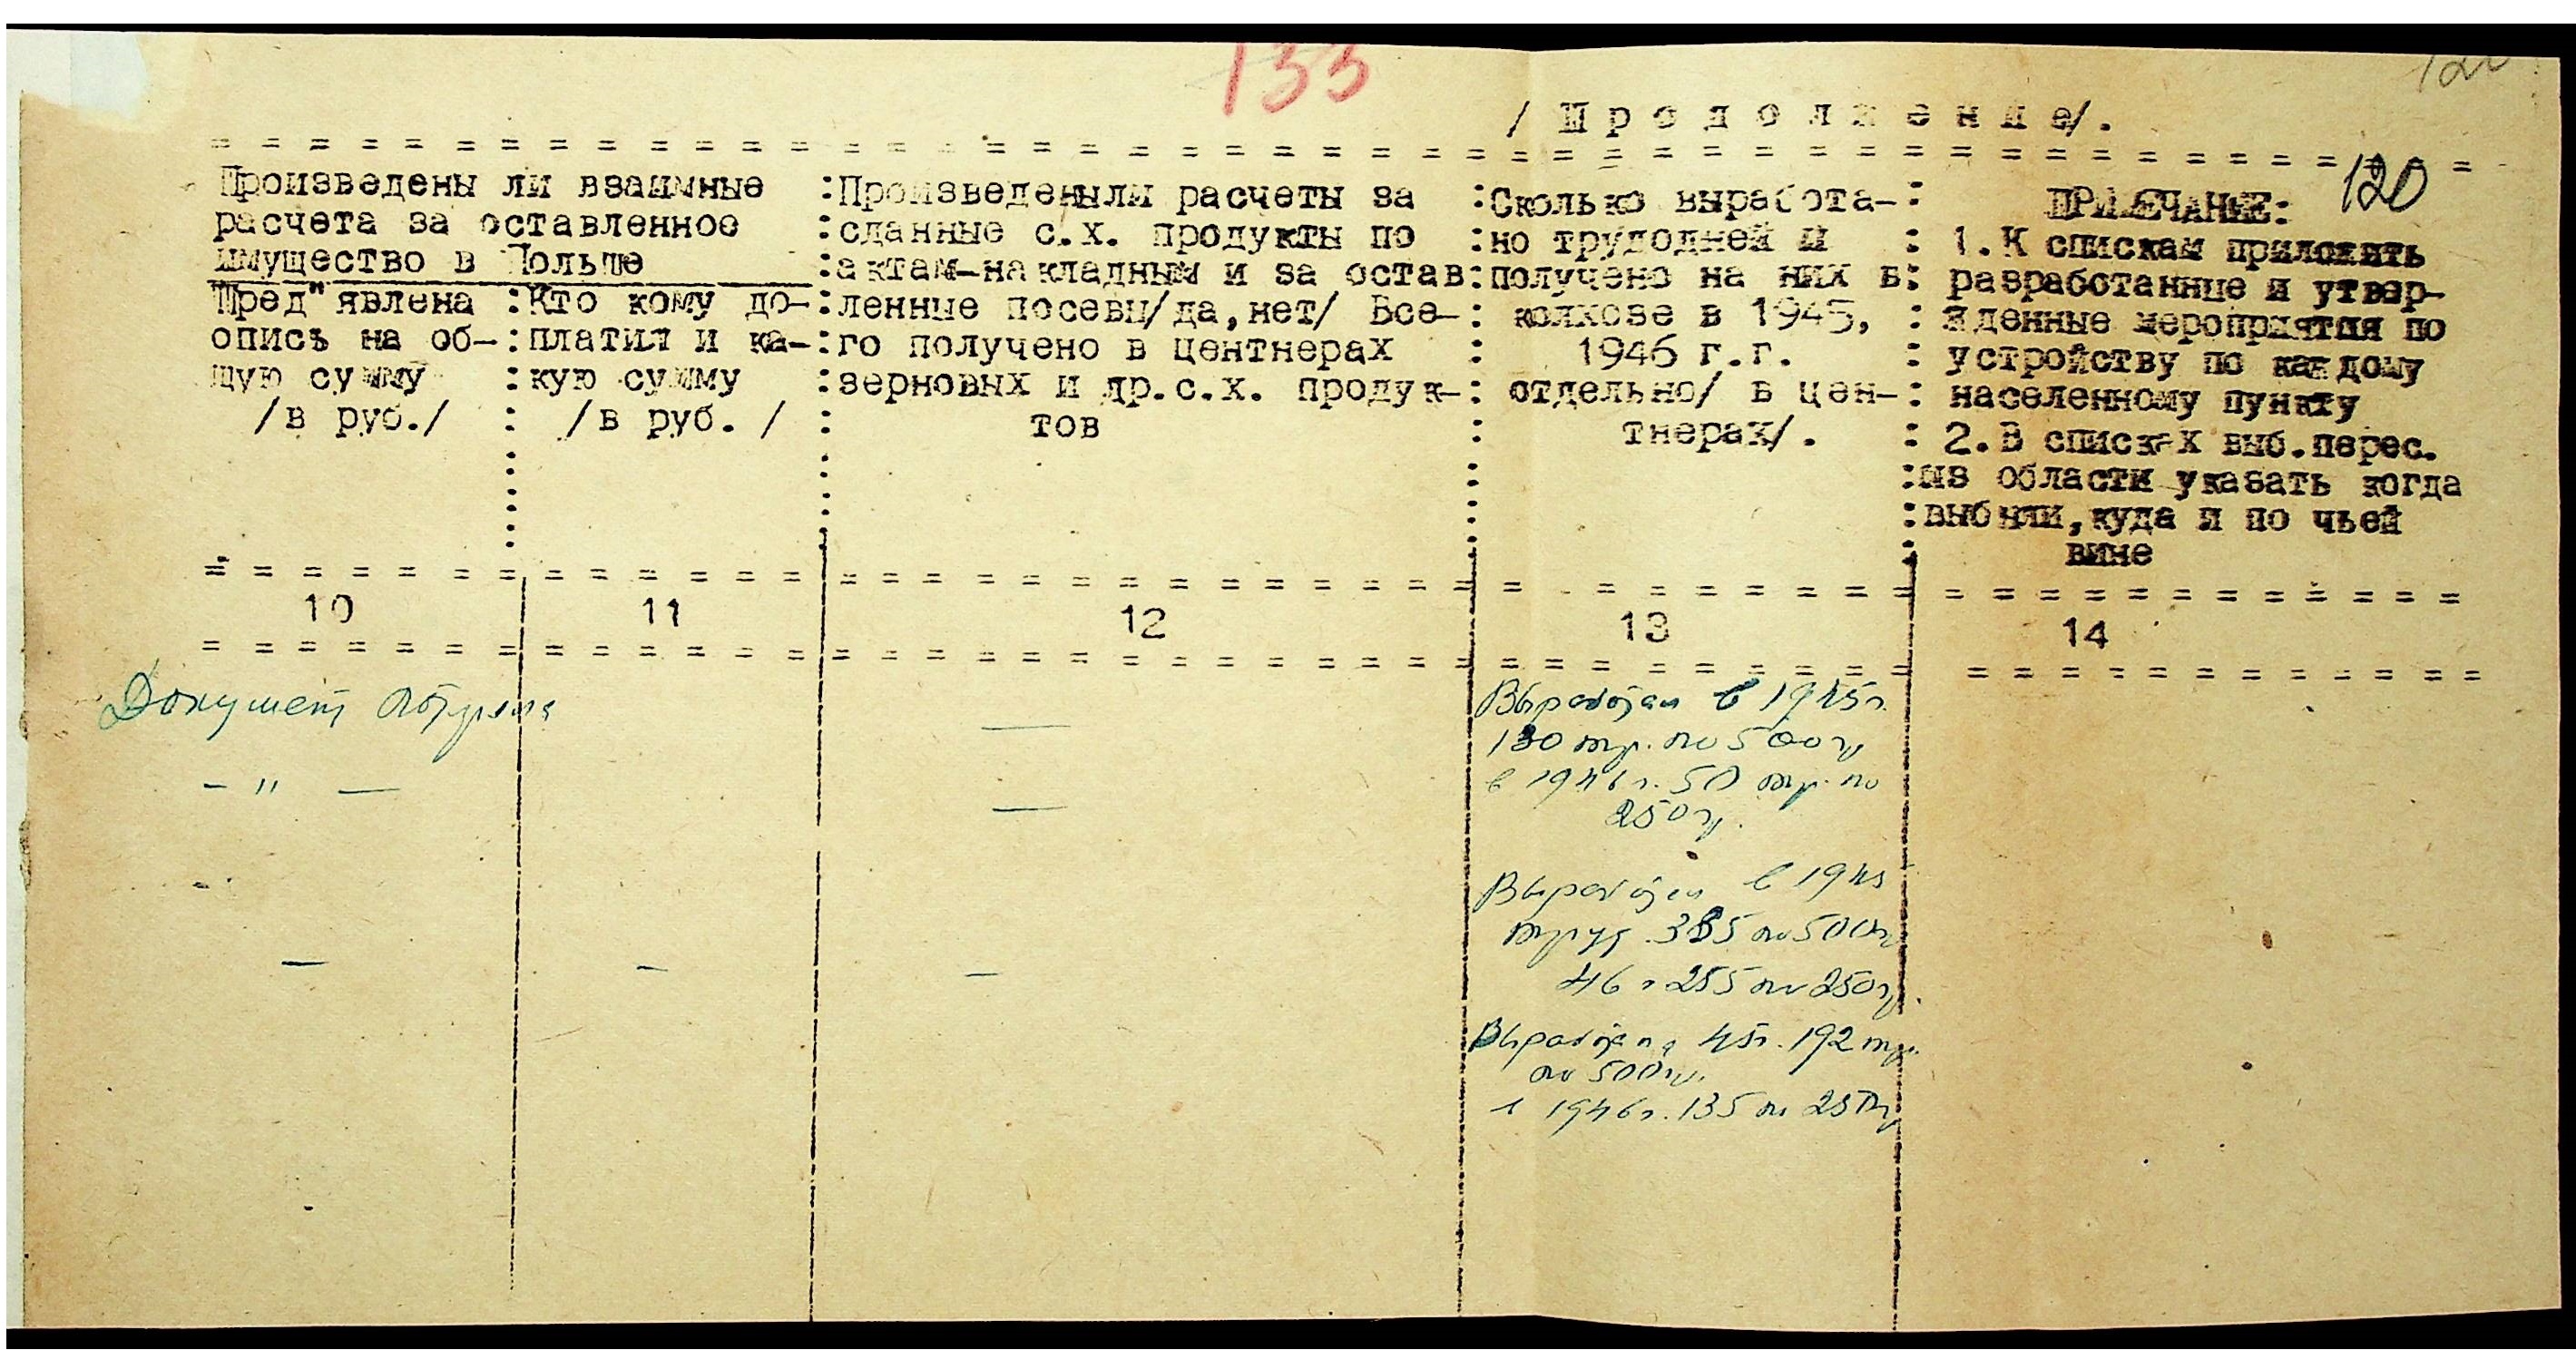 133
120
/ П р о д о л ж е н и е/.
120
Произведены ли взаимные
расчета за оставленное
имущество в Польше
Пред"явлена
опись на об-
щую сумму
/в руб./
Кто кому до-
платил и ка-
кую сумму
/в руб. /
Произведеныли расчеты за
сданные с.х. продукты по
актам-накладным и за остав
ленные посевы/да,нет/ Все-
го получено в центнерах
зерновых и др.с.х. продук-
тов
Сколько выработа-
но трудодней и
получено на них в
колхозе в 1945,
1946 г.г.
отдельно/ в цен-
тнерах/.
ПРИМЕЧАНИЕ:
1.К спискам приложить
разработанные и утвер-
жденные мероприятия по
устройству по каждому
населенному пункту
2.В списках выб.перес.
из области указать когда
выбыли,куда и по чьей
вине
10 11 12 13 14
Документ
- " -
Выработан в 1945г.
130 тр. по 500 гр
в 1946 г. 50 тр. по
250 гр.
Выработан в 1945
труд. 385 по 500гр
46 г 255 по 250гр.
45г. 192 тр.
по 500гр.
1946г. 135 по 250гр